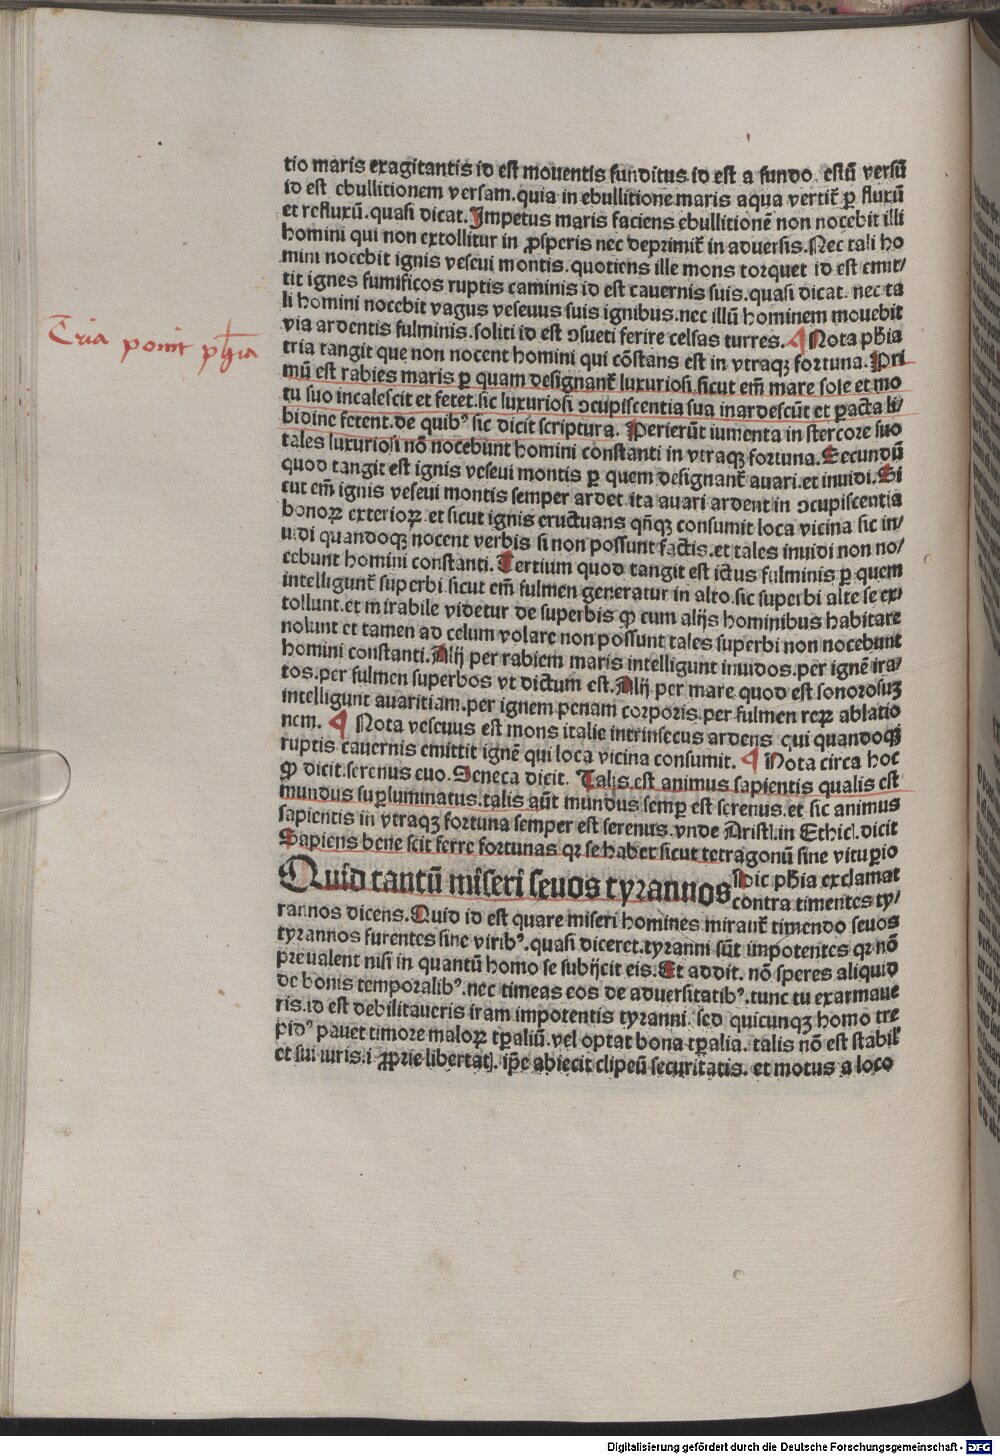 tio maris exagitantis id est mouentis funditus id est a fundo. estū versū
id est ebullitionem versam. quia in ebullitione maris aqua vertit̄ ꝑ fluxū
et refluxū. quasi dicat. Impetus maris faciens ebullitionē non nocebit illi
homini qui non extollitur in ꝓsperis nec deprimit̄ in aduersis. Nec tali ho
mini nocebit ignis veseui montis. quotiens ille mons torquet id est emit/
tit ignes fumificos ruptis caminis id est cauernis suis. quasi dicat. nec ta
li homini nocebit vagus veseuus suis ignibus. nec illū hominem mouebit
via ardentis fulminis. soliti id est ↄsueti ferire celsas turres. ¶ Nota pħia
Tria ponit pħia
tria tangit que non nocent homini qui cōstans est in vtraqꝫ fortuna. Pri
mū est rabies maris ꝑ quam designant̄ luxuriosi. sicut em̄ mare sole et mo
tu suo incalescit et fetet. sic luxuriosi ↄcupiscentia sua inardescūt et ꝑacta li/
bidine fetent. de quibꝰ sic dicit scriptura. Perierūt iumenta in stercore suo
tales luxuriosi nō nocebunt homini constanti in vtraqꝫ fortuna. Secundū
quod tangit est ignis veseui montis ꝑ quem designant̄ auari. et inuidi. Si
cut em̄ ignis veseui montis semper ardet. ita auari ardent in ↄcupiscentia
bonoꝝ exterioꝝ. et sicut ignis eructuans qn̄qꝫ consumit loca vicina sic in/
uidi quandoqꝫ nocent verbis si non possunt factis. et tales inuidi non no/
cebunt homini constanti. Tertium quod tangit est ictus fulminis ꝑ quem
intelligunt̄ superbi. sicut em̄ fulmen generatur in alto. sic superbi alte se ex/
tollunt. et mirabile videtur de superbis ꝙ cum alijs hominibus habitare
nolunt et tamen ad celum volare non possunt tales superbi non nocebunt
homini constanti. Alij per rabiem maris intelligunt inuidos. per ignē ira/
tos. per fulmen superbos vt dictum est. Alij per mare quod est sonorosuꝫ
intelligunt auaritiam. per ignem penam corporis. per fulmen reꝝ ablatio
nem. ¶ Nota veseuus est mons italie intrinsecus ardens qui quandoqꝫ
ruptis cauernis emittit ignē qui loca vicina consumit. ¶ Nota circa hoc
ꝙ dicit. serenus euo. Seneca dicit. Talis est animus sapientis qualis est
mundus suꝑluminatus. talis aūt mundus semꝑ est serenus. et sic animus
sapientis in vtraqꝫ fortuna semper est serenus. vnde Aristl. in Ethicl. dicit
Sapiens bene scit ferre fortunas qr se habet sicut tetragonū sine vituꝑio
Quid tantū miseri seuos tyrannos
Hic pħia exclamat
contra timentes ty/
rannos dicens. Quid id est quare miseri homines mirant̄ timendo seuos
tyrannos furentes sine viribꝰ. quasi diceret. tyranni sūt impotentes qr nō
preualent nisi in quantū homo se subijcit eis. Et addit. nō speres aliquid
de bonis temporalibꝰ. nec timeas eos de aduersitatibꝰ. tunc tu exarmaue
ris. id est debilitaueris iram impotentis tyranni. sed quicunqꝫ homo tre
pidꝰ pauet timore maloꝝ tꝑaliū. vel optat bona tꝑalia. talis nō est stabil̄
et sui iuris. i. ꝓprie libertatꝭ. ip̄e abiecit clipeū securitatis. et motus a loco
Digitalisierung gefördert durch die Deutsche Forschungsgemeinschaft - DFG